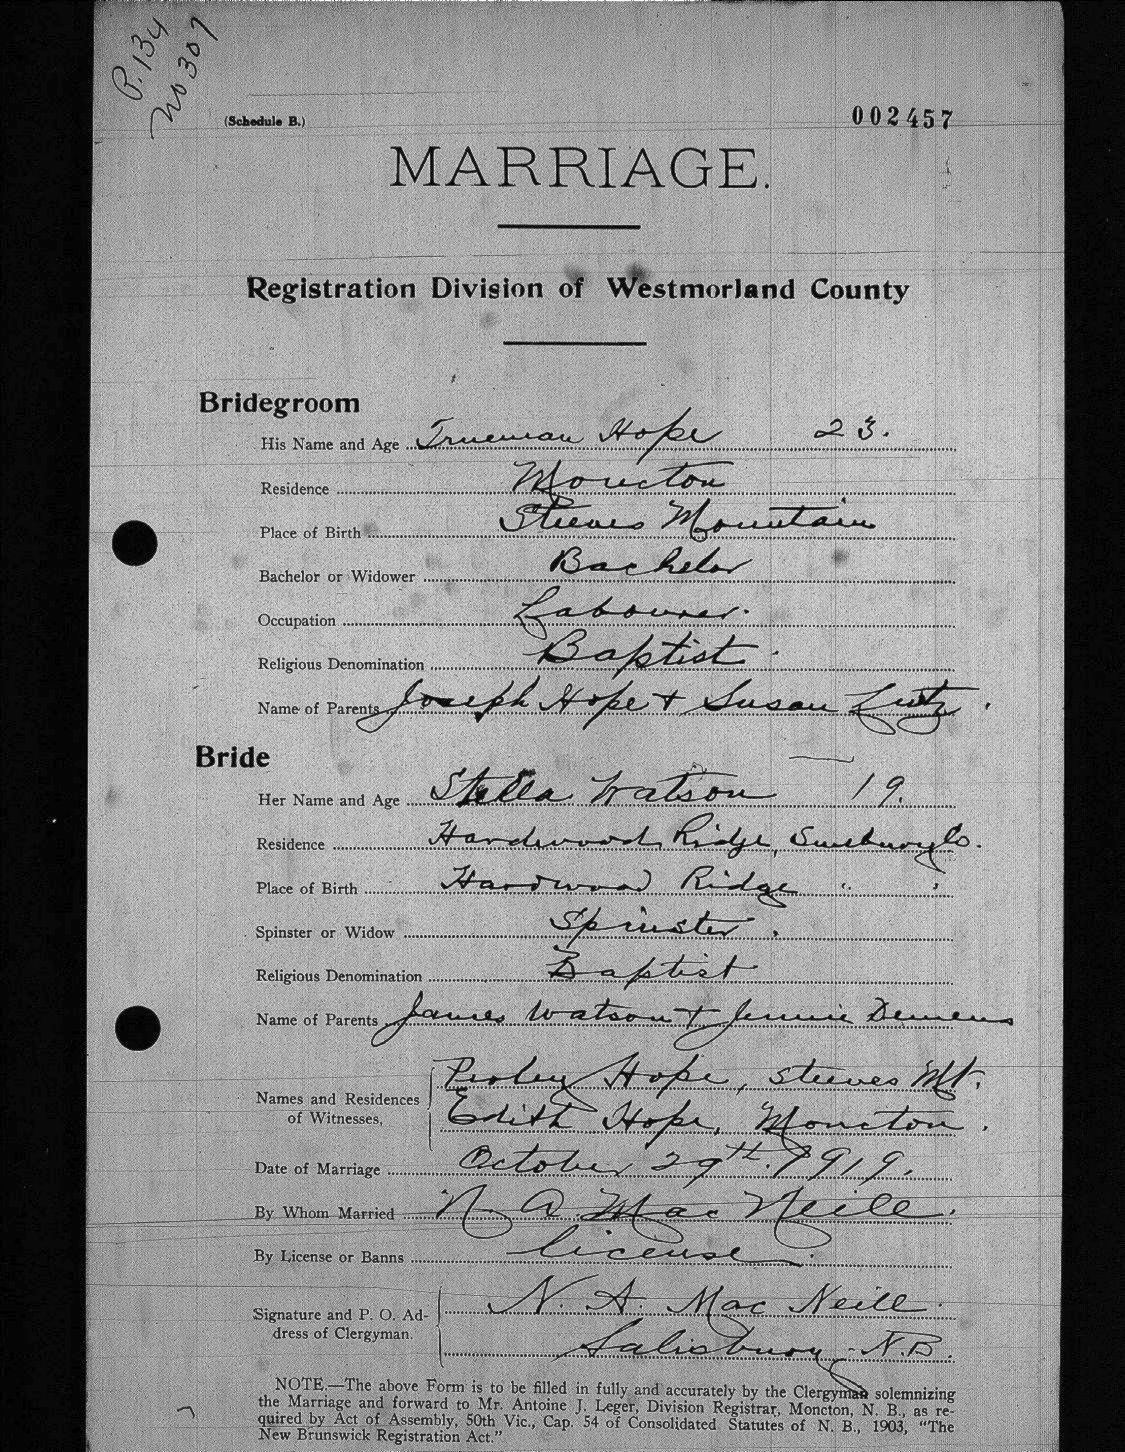 P. 134
No 307
(Schedule B.)
002457
MARRIAGE.
Registration Division of Westmorland County
Bridegroom
His Name and Age Trueman Hope 23.
Residence Moncton
Place of Birth Steeves Mountain
Bachelor or Widower Bachelor
Occupation Labourer.
Religious Denomination Baptist
Name of Parents Joseph Hope + Susan Lutz.
Bride
Her Name and Age Stella Watson 19.
Residence Hardwood Ridge, Sunbury Co.
Place of Birth Hardwood Ridge " "
Spinster or Widow Spinster.
Religious Denomination Baptist
Name of Parents James Watson + Jennie
Names and Residences of Witnesses, Perley Hope, Steeves Mt.
Edith Hope, Moncton.
Date of Marriage October 29th. 1919.
By Whom Married N A MacNeill.
By License or Banns license.
Signature and P. O. Ad- N. A. MacNeill.
dress of Clergyman. Salisbury N.B.
NOTE.—The above Form is to be filled in fully and accurately by the Clergyman solemnizing
the Marriage and forward to Mr. Antoine J. Leger, Division Registrar, Moncton, N. B., as re-
quired by Act of Assembly, 50th Vic., Cap. 54 of Consolidated Statutes of N. B., 1903, "The
New Brunswick Registration Act."